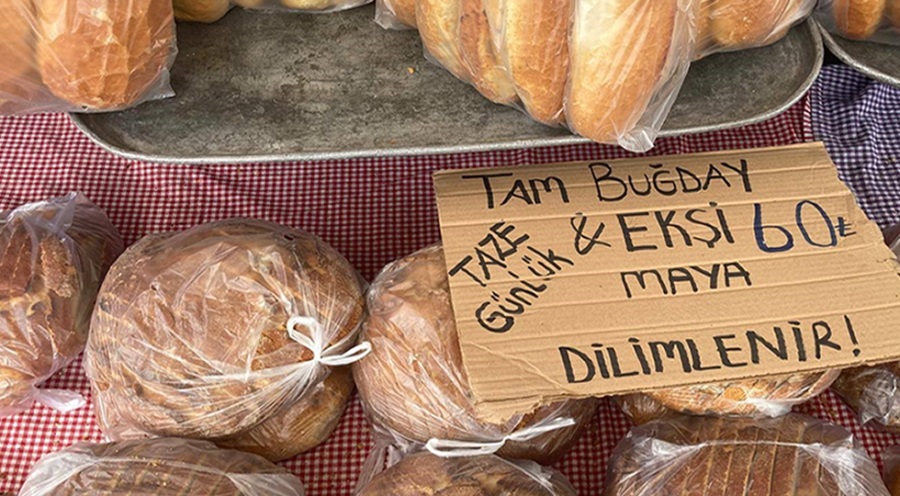 TAM BUĞDAY
& EKŞİ 60₺
MAYA
TAZE
GÜNLÜK
DİLİMLENİR!